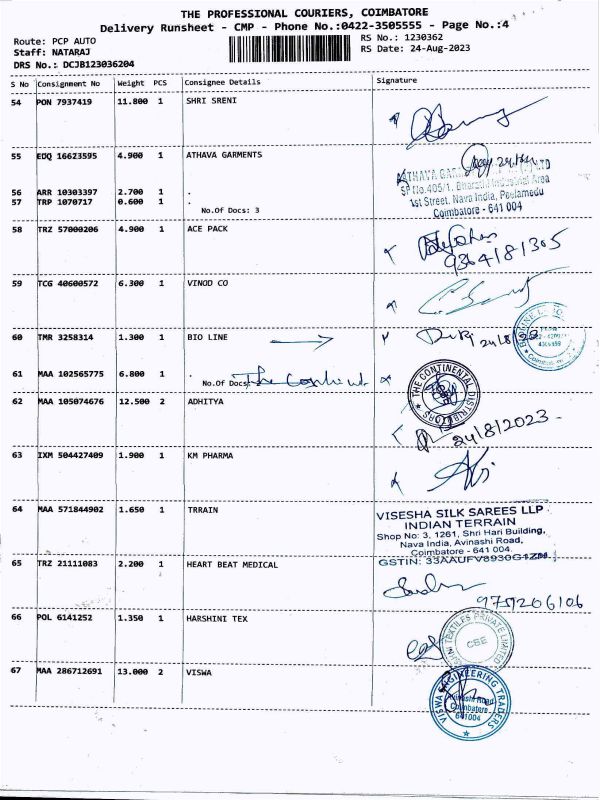 THE PROFESSIONAL COURIERS, COIMBATORE
Delivery Runsheet - CMP - Phone No.:0422-3505555 - Page No.:4
Route: PCP AUTO
RS No.: 1230362
Staff: NATARAJ
RS Date: 24-Aug-2023
DRS No.: DCJB123036204
S No Consignment No Weight PCS Consignee Details Signature
54 PON 7937419 11.800 1 SHRI SRENI
55 EDQ 16623595 4.900 1 ATHAVA GARMENTS
56 ARR 10303397 2.700 1 .
57 TRP 1070717 0.600 1 .
No.Of Docs: 3
SF No.405/1, Bharathi Industrial Area
1st Street, Nava India, Peelamedu
Coimbatore - 641 004
58 TRZ 57000206 4.900 1 ACE PACK
9364181305
59 TCG 40600572 6.300 1 VINOD CO
60 TMR 3258314 1.300 1 BIO LINE
24/8/23
61 MAA 102565775 6.800 1 .
No.Of Docs:
THE CONTINENTAL DISTRIBUTORS
62 MAA 105074676 12.500 2 ADHITYA
24/8/2023
63 IXM 504427409 1.900 1 KM PHARMA
64 MAA 571844902 1.650 1 TRRAIN
VISESHA SILK SAREES LLP
INDIAN TERRAIN
Shop No: 3, 1261, Shri Hari Building,
Nava India, Avinashi Road,
Coimbatore - 641 004.
GSTIN: 33AAUFV8930G1ZM
65 TRZ 21111083 2.200 1 HEART BEAT MEDICAL
9751206106
66 POL 6141252 1.350 1 HARSHINI TEX
TEXTILES PRIVATE LIMITED
CBE
67 MAA 286712691 13.000 2 VISWA
VISWA ENGINEERING TRADERS
Avinashi Road
Coimbatore
641004